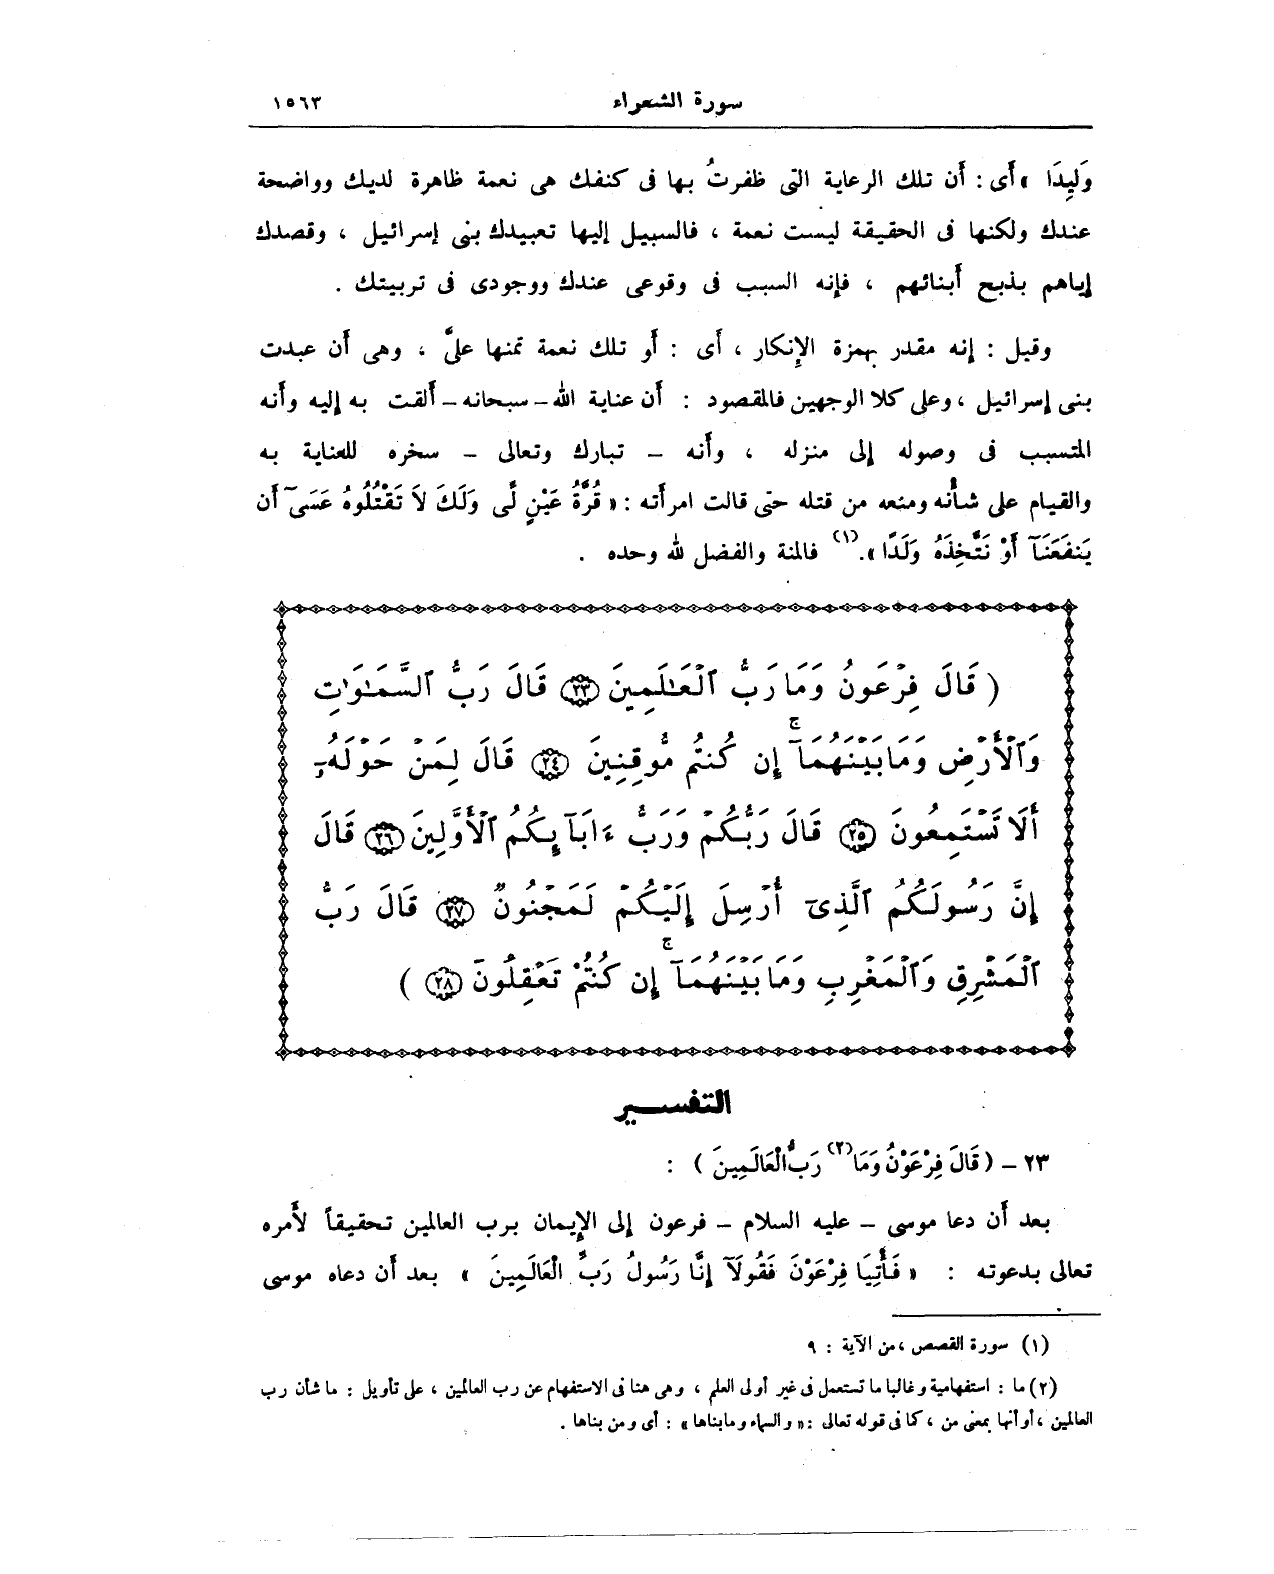 سورة الشعراء ١٥٦٣
وَلِيدًا » أَى : أَن تلك الرعاية التى ظفرتُ بها فى كنفك هى نعمة ظاهرة لديك وواضحة
عندك ولكنها فى الحقيقة ليست نعمة ، فالسبيل إليها تعبيدك بنى إسرائيل ، وقصدك
إياهم بذبح أَبنائهم ، فإنه السبب فى وقوعى عندك ووجودى فى تربيتك .
وقيل : إنه مقدر بهمزة الإِنكار ، أَى : أَو تلك نعمة تمنها علىَّ ، وهى أَن عبدت
بنى إسرائيل ، وعلى كلا الوجهين فالمقصود : أَن عناية الله – سبحانه – أَلقت به إليه وأَنه
المتسبب فى وصوله إلى منزله ، وأَنه – تبارك وتعالى – سخره للعناية به
والقيام على شأْنه ومنعه من قتله حتى قالت امرأَته : « قُرَّةُ عَيْنٍ لِّى وَلَكَ لاَ تَقْتُلُوهُ عَسَىٓ أَن
يَنفَعَنَآ أَوْ نَتَّخِذَهُ وَلَدًا ».(١) فالمنة والفضل لله وحده .
( قَالَ فِرْعَوْنُ وَمَا رَبُّ ٱلْعَـٰلَمِينَ ٢٣ قَالَ رَبُّ ٱلسَّمَـٰوَٰتِ
وَٱلْأَرْضِ وَمَا بَيْنَهُمَآ ۖ إِن كُنتُم مُّوقِنِينَ ٢٤ قَالَ لِمَنْ حَوْلَهُۥٓ
أَلَا تَسْتَمِعُونَ ٢٥ قَالَ رَبُّكُمْ وَرَبُّ ءَابَآئِكُمُ ٱلْأَوَّلِينَ ٢٦ قَالَ
إِنَّ رَسُولَكُمُ ٱلَّذِىٓ أُرْسِلَ إِلَيْكُمْ لَمَجْنُونٌ ٢٧ قَالَ رَبُّ
ٱلْمَشْرِقِ وَٱلْمَغْرِبِ وَمَا بَيْنَهُمَآ ۖ إِن كُنتُمْ تَعْقِلُونَ ٢٨ )
التفســـير
٢٣ – ( قَالَ فِرْعَوْنُ وَمَا(٢) رَبُّ الْعَالَمِينَ ) :
بعد أَن دعا موسى – عليه السلام – فرعون إلى الإِيمان برب العالمين تحقيقاً لأَمره
تعالى بدعوته : « فَأْتِيَا فِرْعَوْنَ فَقُولَآ إِنَّا رَسُولُ رَبِّ الْعَالَمِينَ » بعد أَن دعاه موسى
(١) سورة القصص ، من الآية : ٩
(٢) ما : استفهامية وغالبا ما تستعمل فى غير أولى العلم ، وهى هنا فى الاستفهام عن رب العالمين ، على تأويل : ما شأن رب
العالمين ، أو أنها بمعنى من ، كما فى قوله تعالى : « والسماء وما بناها » : أى ومن بناها .